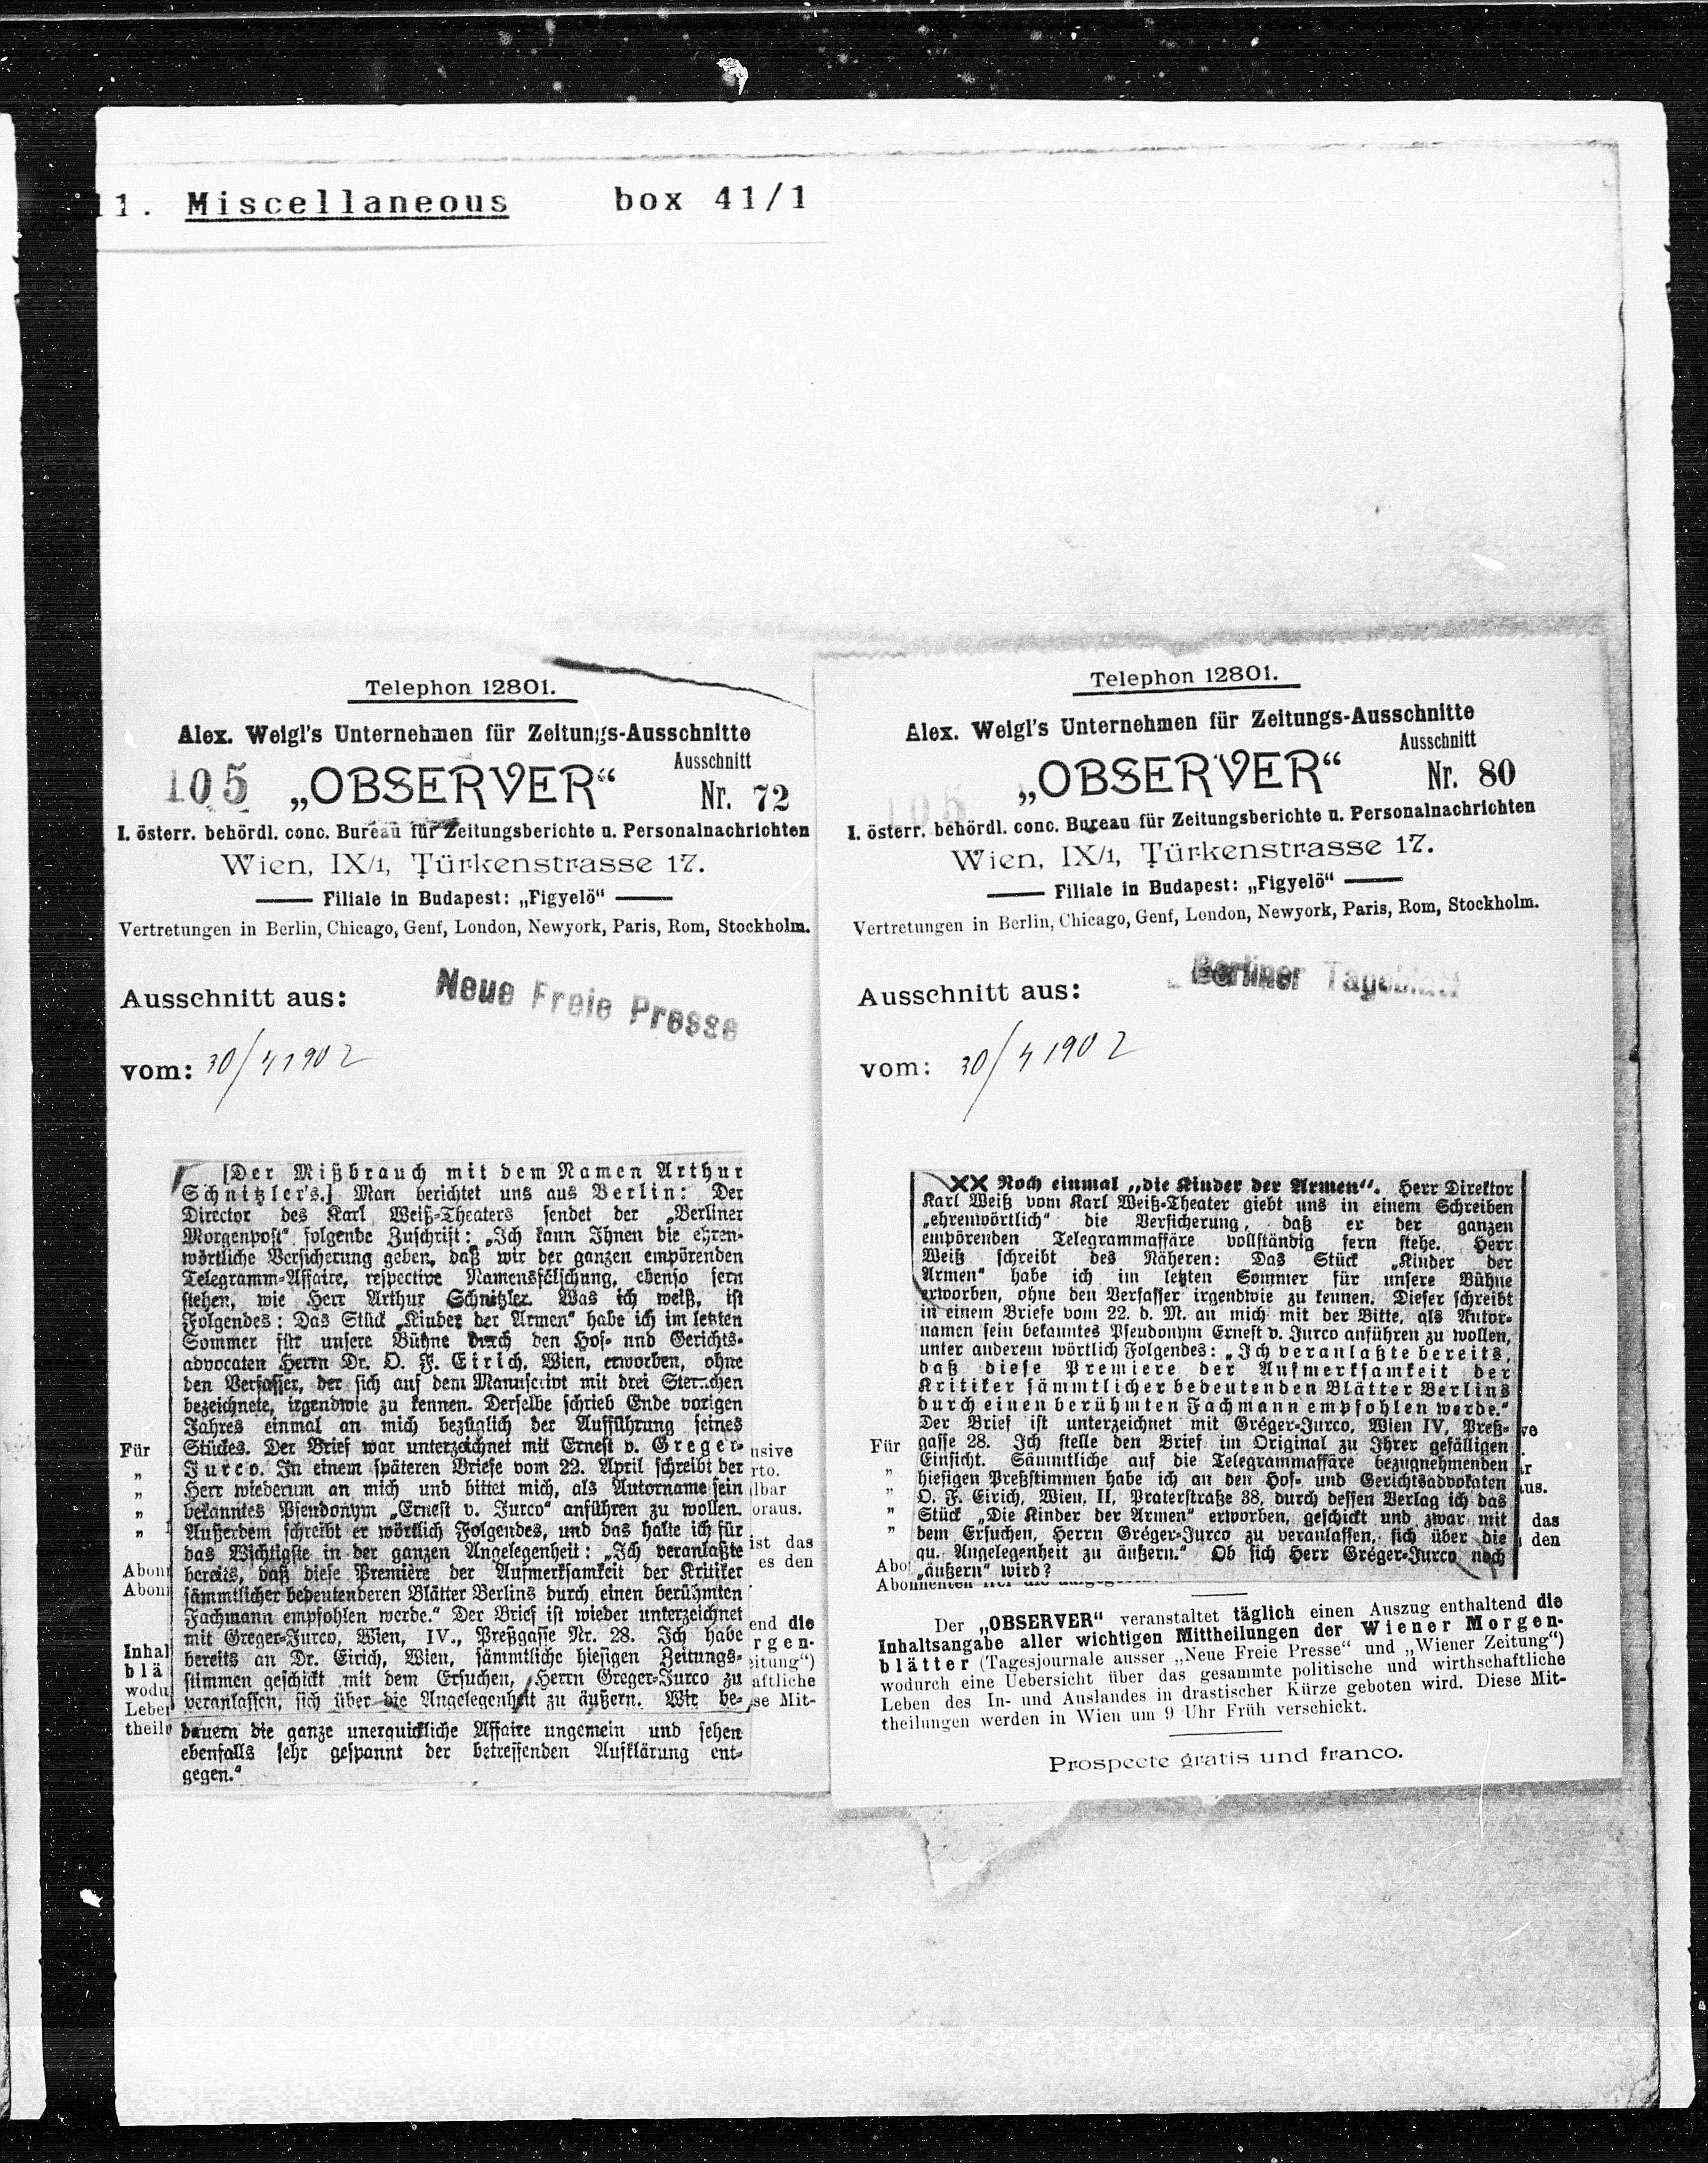 11. Miscellaneous box 41/1
Telephon 12801.
Alex. Weigl's Unternehmen für Zeitungs-Ausschnitte
Ausschnitt
105 „OBSERVER“ Nr. 72
I. österr. behördl. conc. Bureau für Zeitungsberichte u. Personalnachrichten
Wien, IX/1, Türkenstrasse 17.
Filiale in Budapest: „Figyelö“
Vertretungen in Berlin, Chicago, Genf, London, Newyork, Paris, Rom, Stockholm.
Ausschnitt aus: Neue Freie Presse
vom: 30/4 1902
[Der Mißbrauch mit dem Namen Arthur
Schnitzler's.] Man berichtet uns aus Berlin: Der
Director des Karl Weiß-Theaters sendet der „Berliner
Morgenpost“ folgende Zuschrift: „Ich kann Ihnen die ehren-
wörtliche Versicherung geben, daß wir der ganzen empörenden
Telegramm-Affaire, respective Namensfälschung, ebenso fern
stehen, wie Herr Arthur Schnitzler. Was ich weiß, ist
Folgendes: Das Stück „Kinder der Armen“ habe ich im letzten
Sommer für unsere Bühne durch den Hof- und Gerichts-
advocaten Herrn Dr. O. F. Eirich, Wien, erworben, ohne
den Verfasser, der sich auf dem Manuscript mit drei Sternchen
bezeichnete, irgendwie zu kennen. Derselbe schrieb Ende vorigen
Jahres einmal an mich bezüglich der Aufführung seines
Stückes. Der Brief war unterzeichnet mit Ernest v. Greger-
Jurco. In einem späteren Briefe vom 22. April schreibt der
Herr wiederum an mich und bittet mich, als Autorname sein
bekanntes Pseudonym „Ernest v. Jurco“ anführen zu wollen.
Außerdem schreibt er wörtlich Folgendes, und das halte ich für
das Wichtigste in der ganzen Angelegenheit: „Ich veranlaßte
bereits, daß diese Première der Aufmerksamkeit der Kritiker
sämmtlicher bedeutenderen Blätter Berlins durch einen berühmten
Fachmann empfohlen werde.“ Der Brief ist wieder unterzeichnet
mit Greger-Jurco, Wien, IV., Preßgasse Nr. 28. Ich habe
bereits an Dr. Eirich, Wien, sämmtliche hiesigen Zeitungs-
stimmen geschickt mit dem Ersuchen, Herrn Greger-Jurco zu
veranlassen, sich über die Angelegenheit zu äußern. Wir be-
dauern die ganze unerquickliche Affaire ungemein und sehen
ebenfalls sehr gespannt der betreffenden Aufklärung ent-
gegen.“
Für
„
„
„
„
Abon
Abon
Inhal
blä
wodu
Leber
theil
usive
rto.
lbar
oraus.
ist das
es den
end die
rgen-
eitung“)
aftliche
se Mit-
Telephon 12801.
Alex. Weigl's Unternehmen für Zeitungs-Ausschnitte
Ausschnitt
105 „OBSERVER“ Nr. 80
I. österr. behördl. conc. Bureau für Zeitungsberichte u. Personalnachrichten
Wien, IX/1, Türkenstrasse 17.
Filiale in Budapest: „Figyelö“
Vertretungen in Berlin, Chicago, Genf, London, Newyork, Paris, Rom, Stockholm.
Ausschnitt aus: Berliner Tageblatt
vom: 30/4 1902
XX Noch einmal „die Kinder der Armen“. Herr Direktor
Karl Weiß vom Karl Weiß-Theater giebt uns in einem Schreiben
„ehrenwörtlich“ die Versicherung, daß er der ganzen
empörenden Telegrammaffäre vollständig fern stehe. Herr
Weiß schreibt des Näheren: Das Stück „Kinder der
Armen“ habe ich im letzten Sommer für unsere Bühne
erworben, ohne den Verfasser irgendwie zu kennen. Dieser schreibt
in einem Briefe vom 22. d. M. an mich mit der Bitte, als Autor-
namen sein bekanntes Pseudonym Ernest v. Jurco anführen zu wollen,
unter anderem wörtlich Folgendes: „Ich veranlaßte bereits,
daß diese Premiere der Aufmerksamkeit der
Kritiker sämmtlicher bedeutenden Blätter Berlins
durch einen berühmten Fachmann empfohlen werde.“
Der Brief ist unterzeichnet mit Gréger-Jurco, Wien IV, Preß-
gasse 28. Ich stelle den Brief im Original zu Ihrer gefälligen
Einsicht. Sämmtliche auf die Telegrammaffäre bezugnehmenden
hiesigen Preßstimmen habe ich an den Hof- und Gerichtsadvokaten
O. F. Eirich, Wien, II, Praterstraße 38, durch dessen Verlag ich das
Stück „Die Kinder der Armen“ erworben, geschickt und zwar mit
dem Ersuchen, Herrn Gréger-Jurco zu veranlassen, sich über die
qu. Angelegenheit zu äußern.“ Ob sich Herr Gréger-Jurco noch
„äußern“ wird?
Für
„
„
„
„
Abo
ve
r
us.
das
den
Abonnenten frei die
Der „OBSERVER“ veranstaltet täglich einen Auszug enthaltend die
Inhaltsangabe aller wichtigen Mittheilungen der Wiener Morgen-
blätter (Tagesjournale ausser „Neue Freie Presse“ und „Wiener Zeitung“)
wodurch eine Uebersicht über das gesammte politische und wirthschaftliche
Leben des In- und Auslandes in drastischer Kürze geboten wird. Diese Mit-
theilungen werden in Wien um 9 Uhr Früh verschickt.
Prospecte gratis und franco.